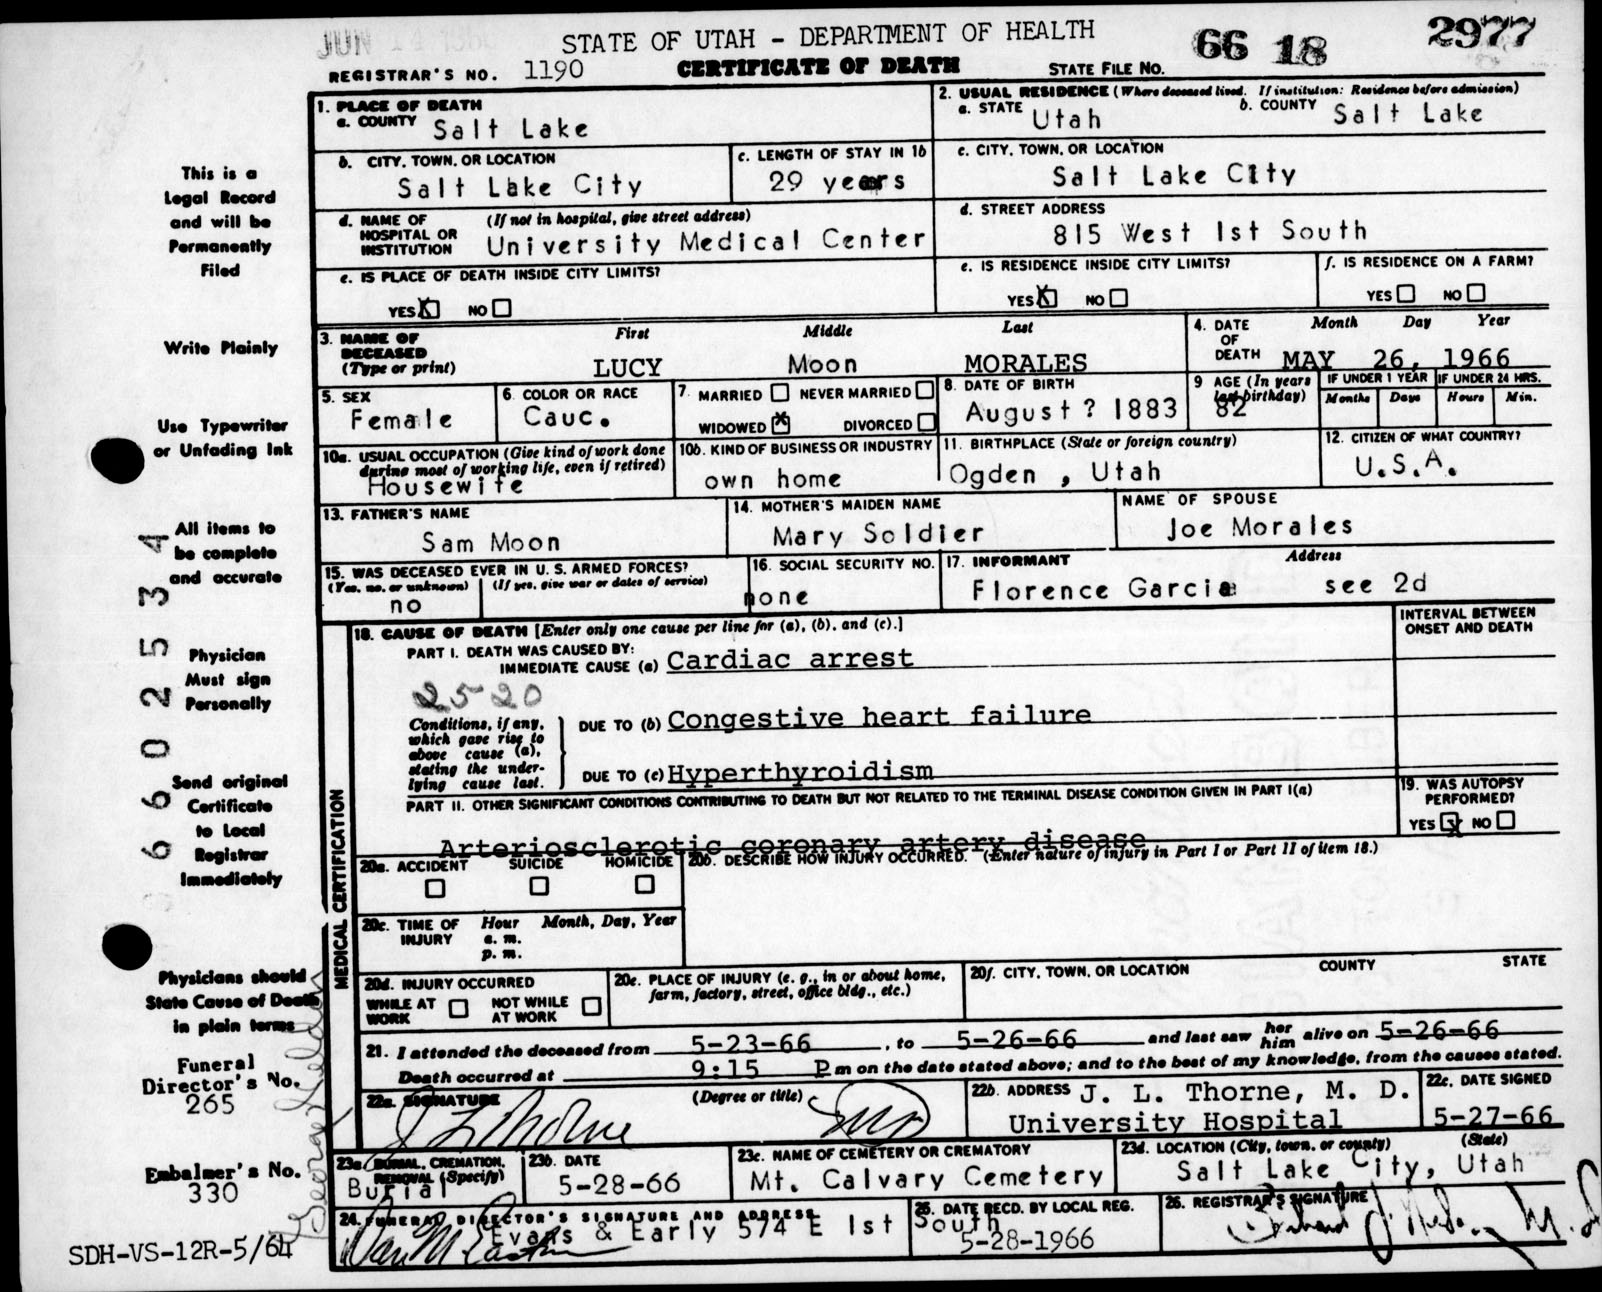 JUN 14 1966
STATE OF UTAH - DEPARTMENT OF HEALTH
66 18 2977
REGISTRAR'S NO. 1190 CERTIFICATE OF DEATH STATE FILE NO.
1. PLACE OF DEATH
a. COUNTY Salt Lake
2. USUAL RESIDENCE (Where deceased lived. If institution: Residence before admission)
a. STATE Utah b. COUNTY Salt Lake
b. CITY, TOWN, OR LOCATION
Salt Lake City
c. LENGTH OF STAY IN 1b
29 years
c. CITY, TOWN, OR LOCATION
Salt Lake City
d. NAME OF HOSPITAL OR INSTITUTION (If not in hospital, give street address)
University Medical Center
d. STREET ADDRESS
815 West 1st South
e. IS PLACE OF DEATH INSIDE CITY LIMITS?
YES X NO
e. IS RESIDENCE INSIDE CITY LIMITS?
YES X NO
f. IS RESIDENCE ON A FARM?
YES NO
3. NAME OF DECEASED (Type or print)
First Middle Last
LUCY Moon MORALES
4. DATE OF DEATH Month Day Year
MAY 26, 1966
5. SEX
Female
6. COLOR OR RACE
Cauc.
7. MARRIED NEVER MARRIED
WIDOWED X DIVORCED
8. DATE OF BIRTH
August ? 1883
9 AGE (In years last birthday)
82
IF UNDER 1 YEAR IF UNDER 24 HRS.
Months Days Hours Min.
10a. USUAL OCCUPATION (Give kind of work done during most of working life, even if retired)
Housewife
10b. KIND OF BUSINESS OR INDUSTRY
own home
11. BIRTHPLACE (State or foreign country)
Ogden , Utah
12. CITIZEN OF WHAT COUNTRY?
U.S.A.
13. FATHER'S NAME
Sam Moon
14. MOTHER'S MAIDEN NAME
Mary Soldier
NAME OF SPOUSE
Joe Morales
15. WAS DECEASED EVER IN U. S. ARMED FORCES?
(Yes, no, or unknown) (If yes, give war or dates of service)
no
16. SOCIAL SECURITY NO.
none
17. INFORMANT Address
Florence Garcia see 2d
18. CAUSE OF DEATH [Enter only one cause per line for (a), (b), and (c).]
INTERVAL BETWEEN ONSET AND DEATH
PART I. DEATH WAS CAUSED BY:
IMMEDIATE CAUSE (a) Cardiac arrest
2520
Conditions, if any, which gave rise to above cause (a), stating the underlying cause last.
DUE TO (b) Congestive heart failure
DUE TO (c) Hyperthyroidism
PART II. OTHER SIGNIFICANT CONDITIONS CONTRIBUTING TO DEATH BUT NOT RELATED TO THE TERMINAL DISEASE CONDITION GIVEN IN PART I(a)
Arteriosclerotic coronary artery disease
19. WAS AUTOPSY PERFORMED?
YES X NO
MEDICAL CERTIFICATION
20a. ACCIDENT SUICIDE HOMICIDE
20b. DESCRIBE HOW INJURY OCCURRED. (Enter nature of injury in Part I or Part II of item 18.)
20c. TIME OF INJURY Hour Month, Day, Year
a. m.
p. m.
20d. INJURY OCCURRED
WHILE AT WORK NOT WHILE AT WORK
20e. PLACE OF INJURY (e. g., in or about home, farm, factory, street, office bldg., etc.)
20f. CITY, TOWN, OR LOCATION COUNTY STATE
21. I attended the deceased from 5-23-66, to 5-26-66 and last saw her him alive on 5-26-66
Death occurred at 9:15 P m on the date stated above; and to the best of my knowledge, from the causes stated.
22a. SIGNATURE (Degree or title)
J L Thorne MD
22b. ADDRESS J. L. Thorne, M. D.
University Hospital
22c. DATE SIGNED
5-27-66
23a. BURIAL, CREMATION, REMOVAL (Specify)
Burial
23b. DATE
5-28-66
23c. NAME OF CEMETERY OR CREMATORY
Mt. Calvary Cemetery
23d. LOCATION (City, town, or county) (State)
Salt Lake City, Utah
24. FUNERAL DIRECTOR'S SIGNATURE AND ADDRESS
Evans & Early 574 E 1st South
25. DATE RECD. BY LOCAL REG.
5-28-1966
26. REGISTRAR'S SIGNATURE
This is a
Legal Record
and will be
Permanently
Filed
Write Plainly
Use Typewriter
or Unfading Ink
All items to
be complete
and accurate
Physician
Must sign
Personally
Send original
Certificate
to Local
Registrar
Immediately
Physicians should
State Cause of Death
in plain terms
Funeral
Director's No.
265
Embalmer's No.
330
SDH-VS-12R-5/64